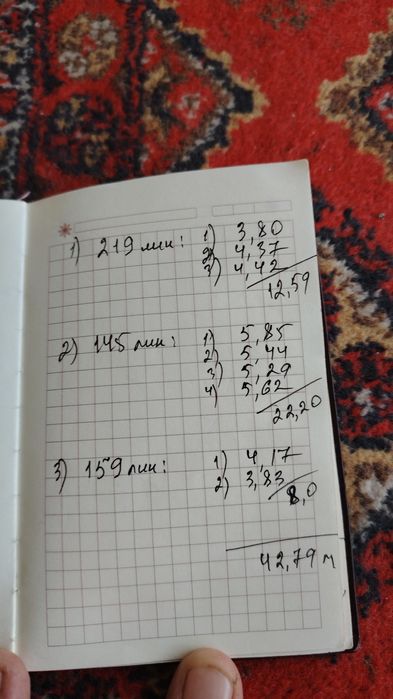 1) 219 мин: 1) 3,80
2) 4,37
3) 4,42
12,59
2) 145 мин: 1) 5,85
2) 5,44
3) 5,29
4) 5,62
22,20
3) 159 мин: 1) 4,17
2) 3,83
8,0
42,79 м